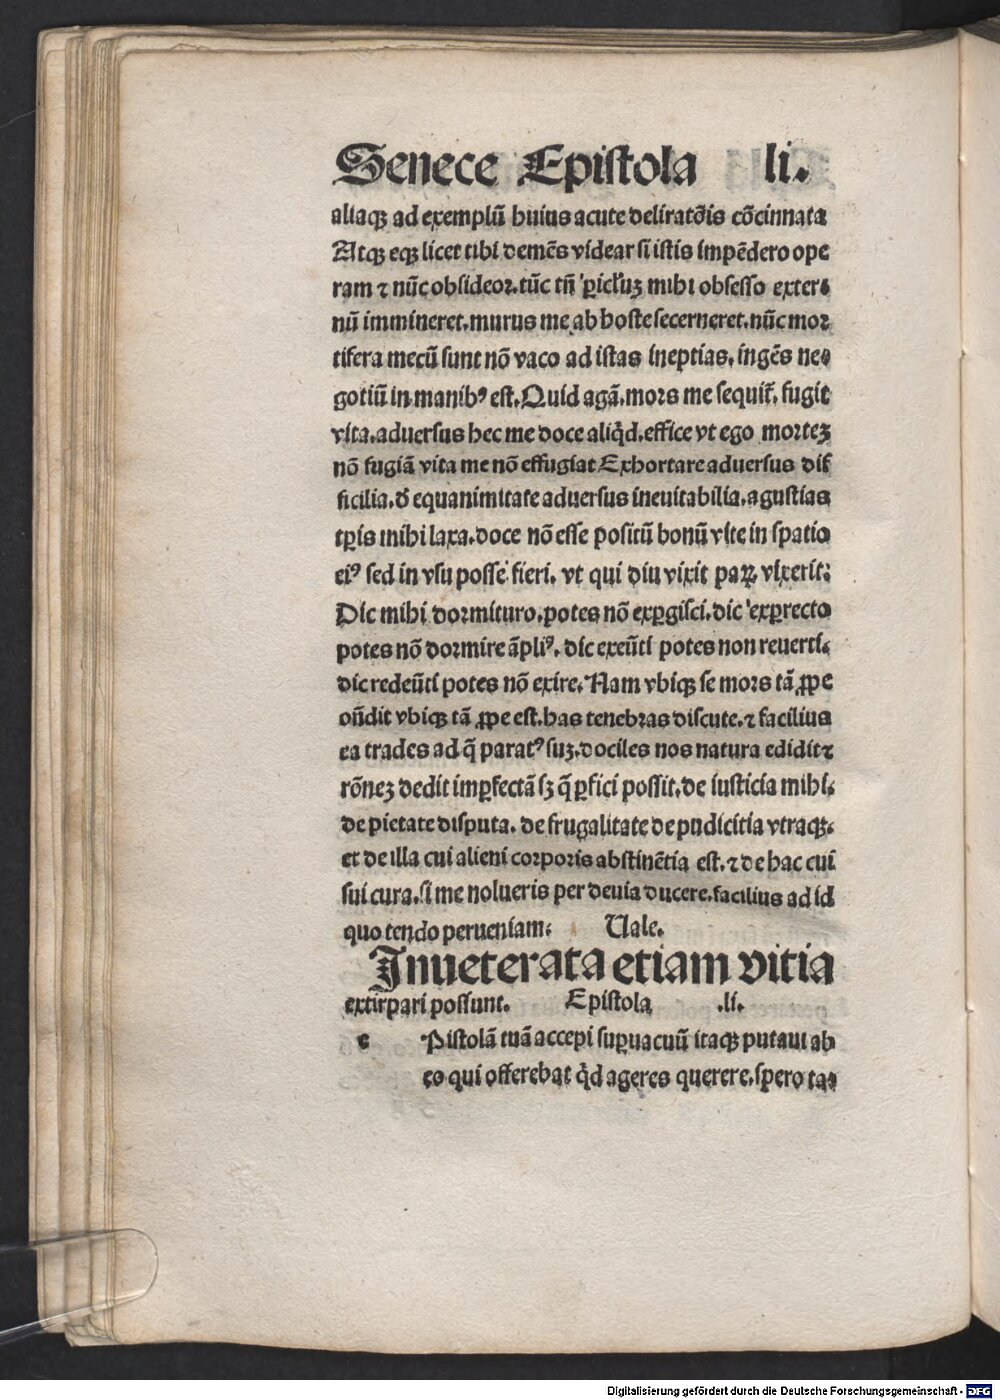 Senece Epistola li.
aliaqꝫ ad exemplū huius acute deliratõis cõcinnata
Atqꝫ eqꝫ licet tibi demẽs videar si istis impẽdero ope
ram ⁊ nũc obsideor. tũc tñ ꝑicl'uꝫ mihi obsesso exter⸗
nũ immineret. murus me ab hoste secerneret. nũc mor
tifera mecũ sunt nõ vaco ad istas ineptias. ingẽs ne⸗
gotiũ in manibꝰ est. Quid agã. mors me sequit̃. fugit
vita. aduersus hec me doce aliq̃d. effice vt ego morteꝫ
nõ fugiã vita me nõ effugiat Exhortare aduersus dif
ficilia. ð equanimitate aduersus ineuitabilia. agustias
tꝑis mihi laxa. doce nõ esse positũ bonũ vite in spatio
eiꝰ sed in vsu posse fieri. vt qui diu vixit paꝝ vixerit:
Dic mihi dormituro. potes nõ exꝑgisci. dic exꝑrecto
potes nõ dormire ãpliꝰ. dic exeũti potes non reuerti.
dic redeũti potes nõ exire. Nam vbiqꝫ se mors tã ꝓpe
oñdit vbiqꝫ tã ꝓpe est. has tenebras discute. ⁊ facilius
ea trades ad q̃ paratꝰ suꝫ. dociles nos natura edidit ⁊
rõneꝫ dedit imꝑfectã sꝫ q̃ ꝑfici possit. de iusticia mihi.
de pietate disputa. de frugalitate de pudicitia vtraqꝫ.
et de illa cui alieni corporis abstinẽtia est. ⁊ de hac cui
sui cura. si me nolueris per deuia ducere. facilius ad id
quo tendo perueniam: Uale.
Inueterata etiam vitia
extirpari possunt. Epistola .li.
e Pistolã tuã accepi suꝑuacuũ itaqꝫ putaui ab
eo qui offerebat q̃d ageres querere. spero ta⸗
Digitalisierung gefördert durch die Deutsche Forschungsgemeinschaft - DFG